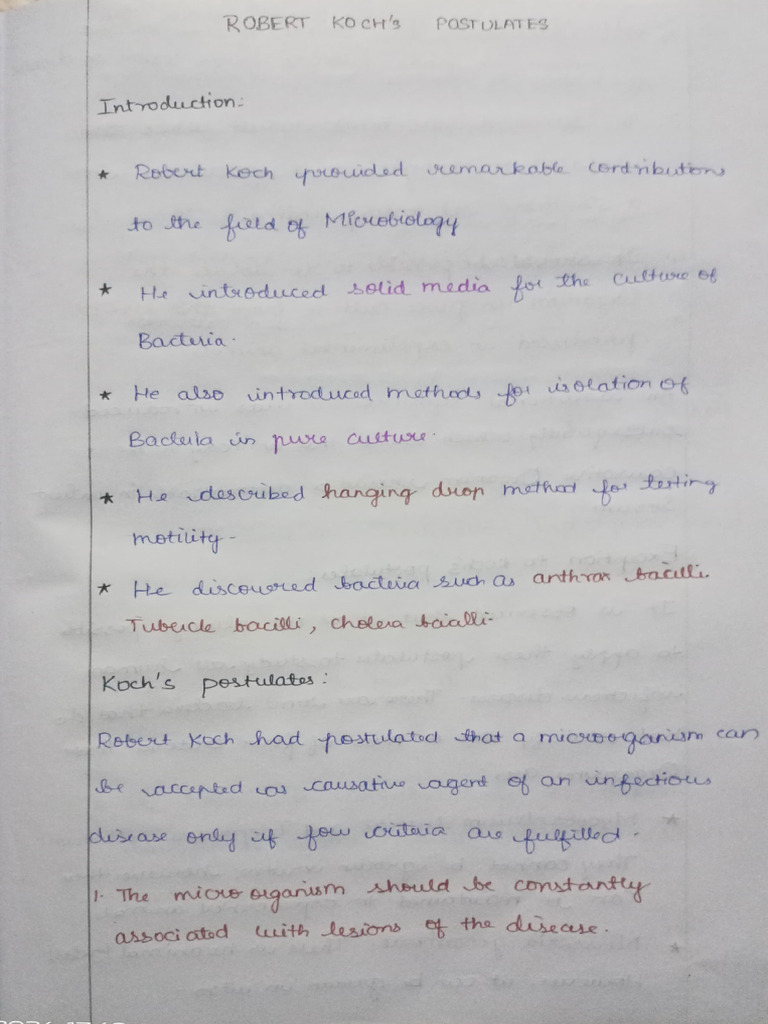 ROBERT KOCH's POSTULATES
Introduction:
★ Robert Koch provided remarkable contributions
to the field of Microbiology
★ He introduced solid media for the culture of
Bacteria.
★ He also introduced methods for isolation of
Bacteria in pure culture.
★ He described hanging drop method for testing
motility-
★ He discovered bacteria such as anthrax bacilli.
Tubercle bacilli, cholera bacilli-
Koch's postulates:
Robert Koch had postulated that a microorganism can
be accepted as causative agent of an infectious
disease only if four criteria are fulfilled.
1. The micro organism should be constantly
associated with lesions of the disease.